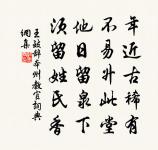 年近古稀有
不易升此堂
他日留泉下
須留姓氏香
王辭本州教官詞典
網集